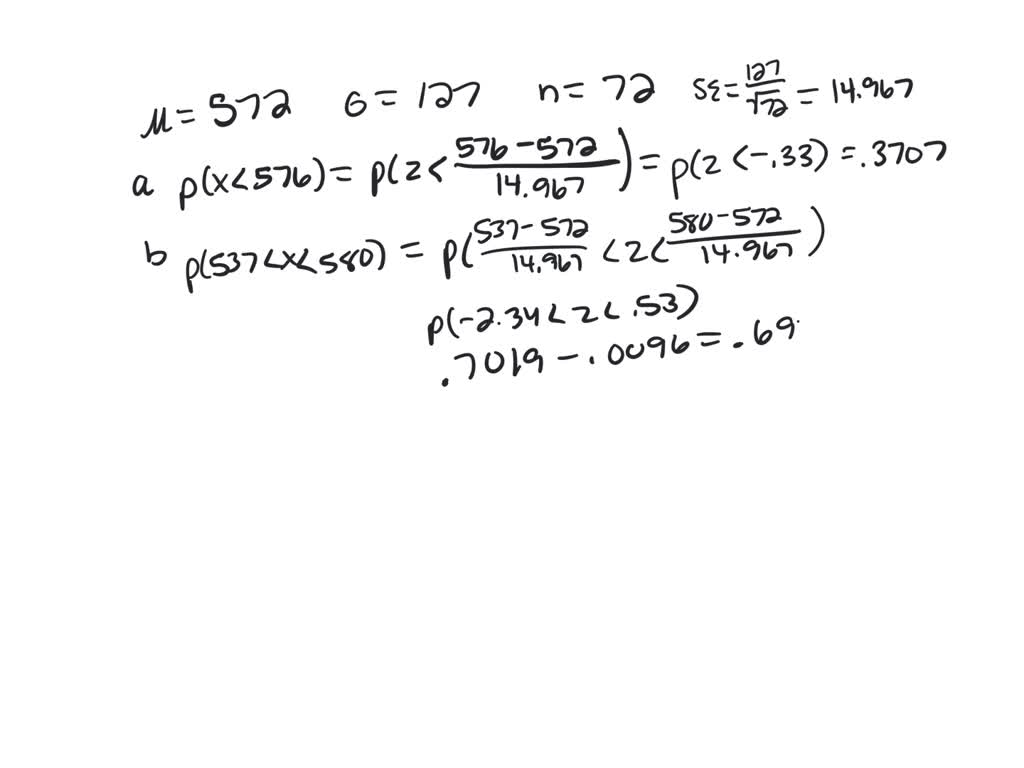 μ = 572 σ = 127 n = 72 SE = 127/√72 = 14.967
a p(x < 576) = p(z < (576 - 572)/14.967) = p(z < -.33) = .3707
b p(537 < x < 580) = p((537 - 572)/14.967 < z < (580 - 572)/14.967)
p(-2.34 < z < .53)
.7019 - .0096 = .69